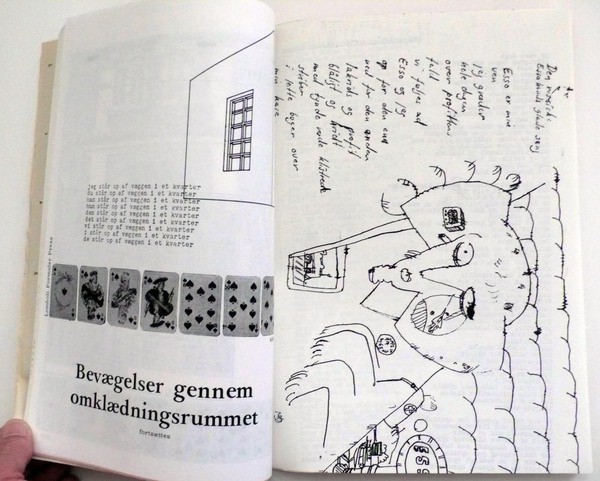 jeg står op af væggen i et kvarter
du står op af væggen i et kvarter
han står op af væggen i et kvarter
hun står op af væggen i et kvarter
den står op af væggen i et kvarter
det står op af væggen i et kvarter
vi står op af væggen i et kvarter
i står op af væggen i et kvarter
de står op af væggen i et kvarter
Bevægelser gennem
omklædningsrummet
fortsættes
Den
glade sang
Esso er min
ven
jeg
hele dagen
over profitten
fuld
vi følges ad
Esso og jeg
op for den ene
ned for den anden
og profit
blåligt og hvidt
med tynde røde
striber
i lette buer over
min have